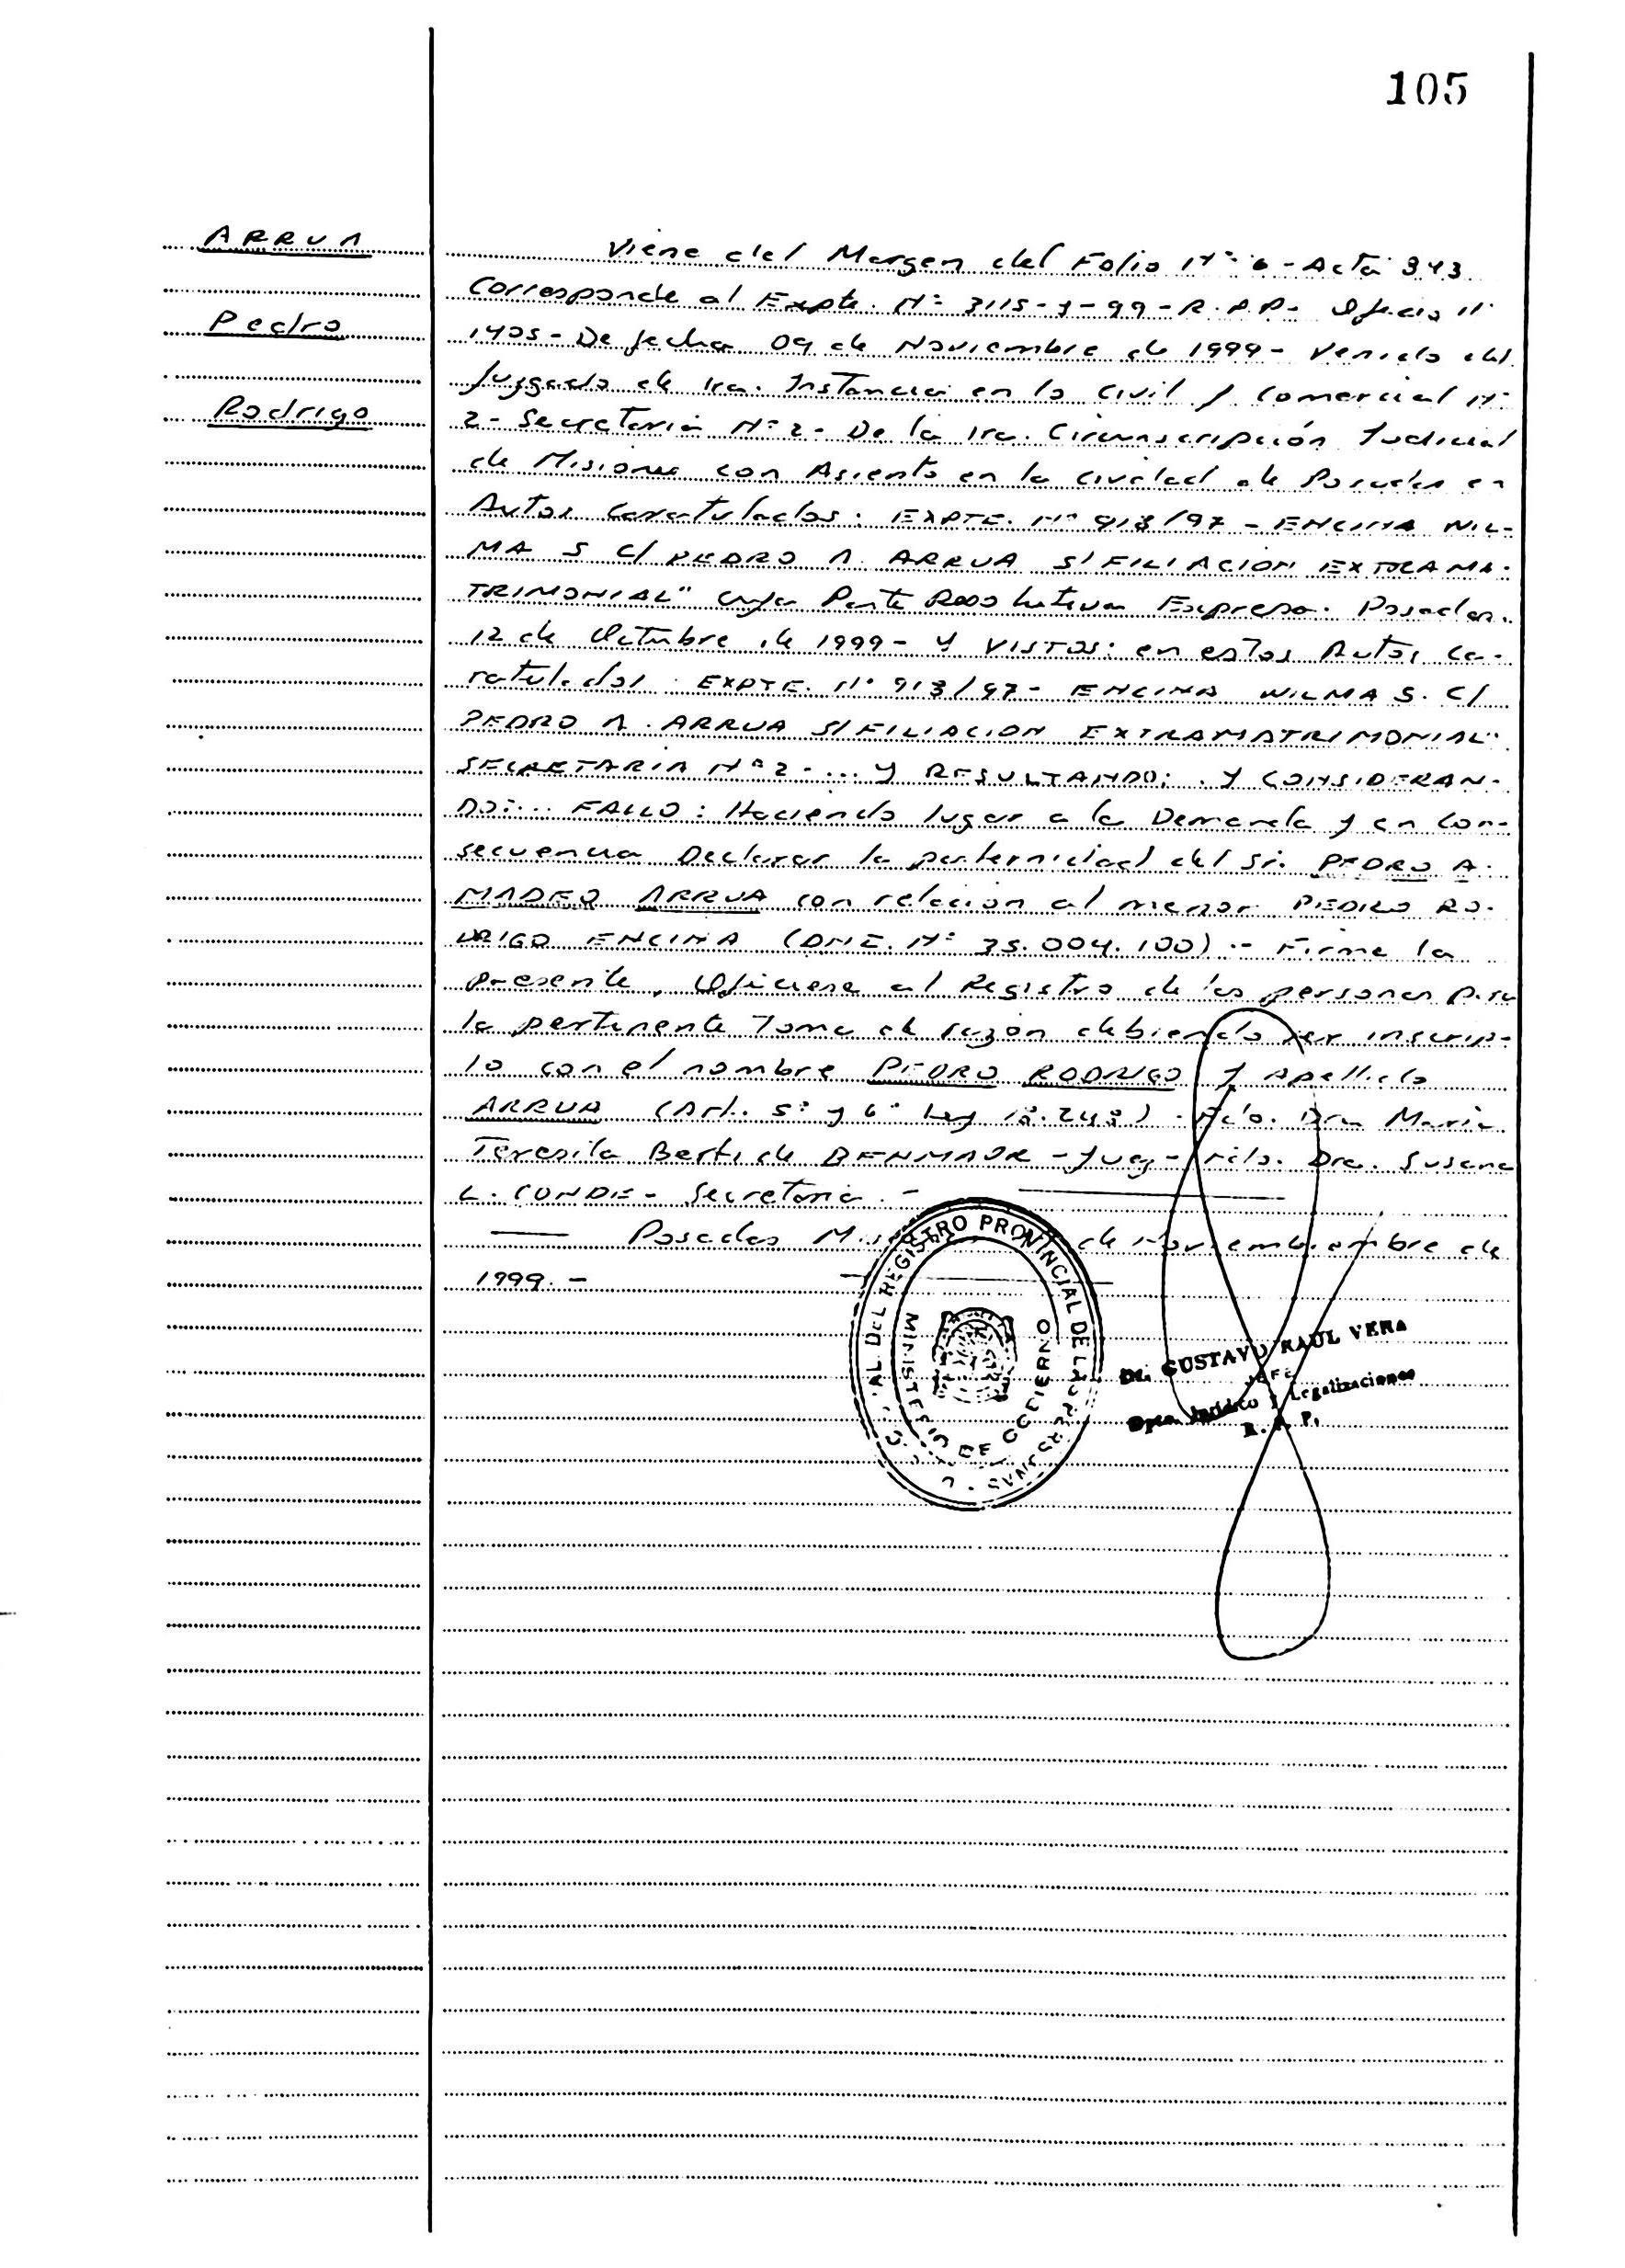 105
ARRUA
Pedro
Rodrigo
Viene del Margen del Folio Nº 6 - Acta 343
Corresponde al Expte. Nº 3115-J-99-R.P.P.- Oficio Nº
1405- De fecha 09 de Noviembre de 1999- Venido del
Juzgado de 1ra. Instancia en lo Civil y Comercial Nº
2- Secretaria Nº 2- De la 1ra. Circunscripción Judicial
de Misiones con Asiento en la Ciudad de Posadas en
Autos Caratulados: EXPTE. Nº 913/97 - ENCINA WIL-
MA S C/ PEDRO A ARRUA S/ FILIACION EXTRAMA-
TRIMONIAL" cuya Parte Resolutiva Expresa: Posadas,
12 de Octubre de 1999- Y VISTOS: en estos Autos Ca-
ratulados EXPTE. Nº 913/97- ENCINA WILMA S. C/
PEDRO A. ARRUA S/ FILIACION EXTRAMATRIMONIAL"
SECRETARIA Nº 2-... Y RESULTANDO: . Y CONSIDERAN-
DO:... FALLO: Haciendo lugar a la Demanda y en con-
secuencia Declarar la paternidad del Sr. PEDRO A-
MADEO ARRUA con relacion al menor PEDRO RO-
DRIGO ENCINA (DNI. Nº 35.004.100) .- Firme la
presente, Ofíciese al Registro de las personas para
la pertinente Toma de razón debiendo ser inscrip-
to con el nombre PEDRO RODRIGO y Apellido
ARRUA (Art. 5º y 6º Ley 18.248) . Fdo. Dra Maria
Teresita Berti de BENMAOR - Juez - Fdo. Dra. Susana
L. CONDE - Secretaria. -
Posadas de Noviembiembre de
1999. -
REGISTRO PROVINCIAL DE LAS PERSONAS
MINISTERIO DE GOBIERNO
Dr. GUSTAVO RAUL VERA
JEFE
Dpto. Jurídico y Legalizaciones
R. P. P.